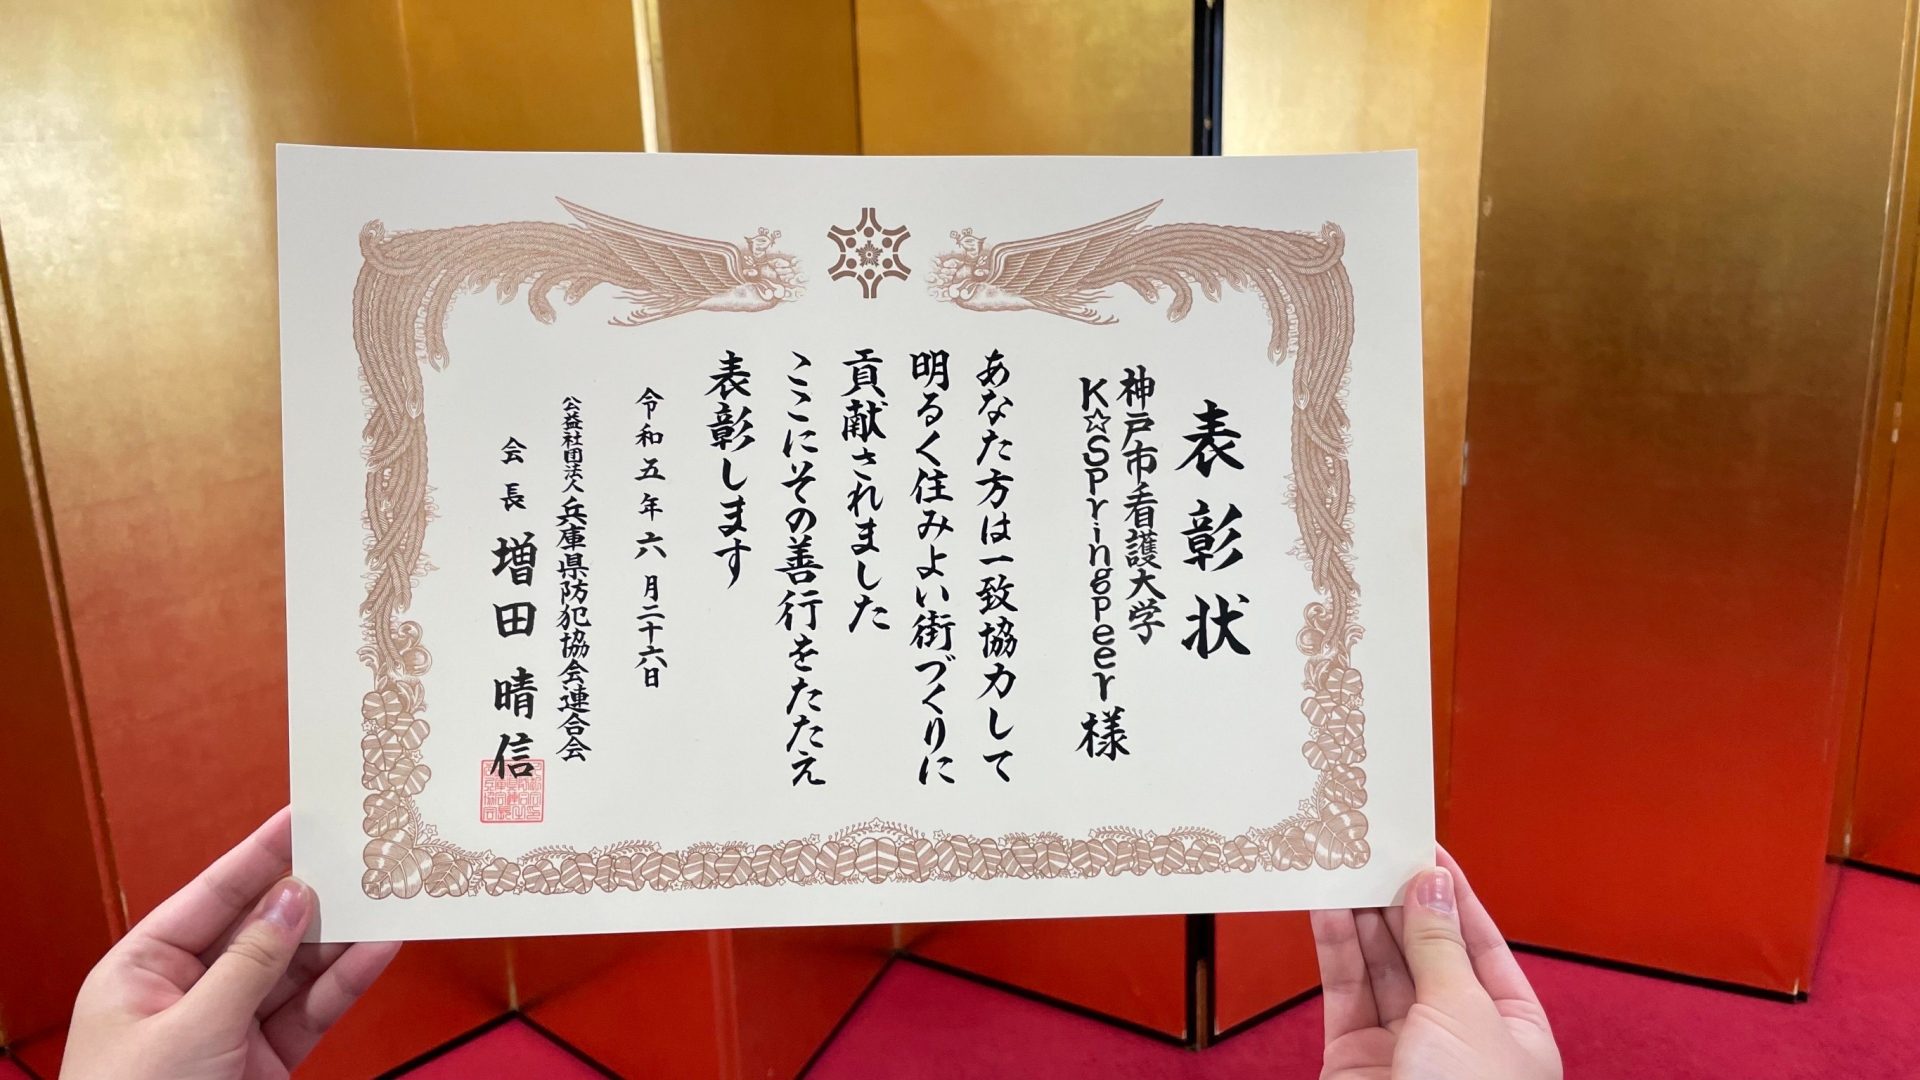 表彰状
神戸市看護大学
K☆Springpeer様
あなた方は一致協力して
明るく住みよい街づくりに
貢献されました
ここにその善行をたたえ
表彰します
令和五年六月二十六日
公益社団法人兵庫県防犯協会連合会
会長 増田晴信